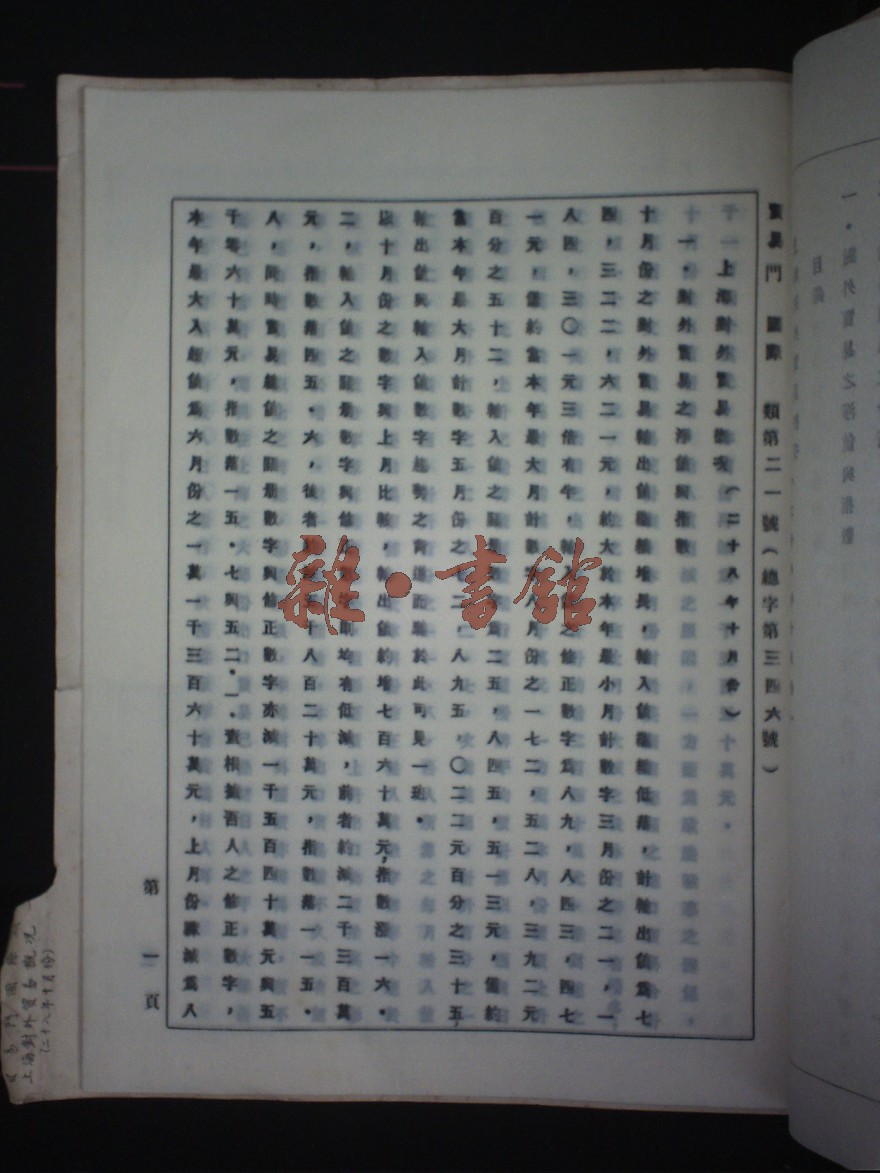 貿易門 國際 類第二一號(總字第三四六號)
上海對外貿易概況(二十八年十月份)
一，對外貿易之淨值與指數
十月份之對外貿易輸出值繼續增長，輸入值繼續低落，計輸出值爲七
四，三二二，六二一元，約大於本年最小月計數字三月份之二一，一
八四，三〇一元三倍有半，輸入值之修正數字爲八九，八四三，四七
一元，僅約當本年最大月計數字八月份之一七二，五二八，三九二元
百分之五十二，輸入值之關册 爲二五，八四五，五一三元，僅約
當本年最大月計數字五月份之七三，八九五，〇二二元百分之三十五，
輸出值與輸入值數字趨勢之背道而馳於此可見一班。
以十月份之數字與上月比較，輸出值約增七百六十萬元，指數漲一六・
二，輸入值之關册數字與修正 均有低減，前者約減二千三百萬
元，指數落四五・六，後者 八百二十萬元，指數落一一五・
八，同時貿易總值之關册數字與修正數字亦減一千五百四十萬元與五
千零六十萬元，指數落一五・七與五二・一，查根據吾人之修正數字，
本年最大入超值爲六月份之一萬一千三百六十萬元，上月份降減爲八
第一頁
雜・書館
門國際
上海對外貿易概况
(二十八年十月份)